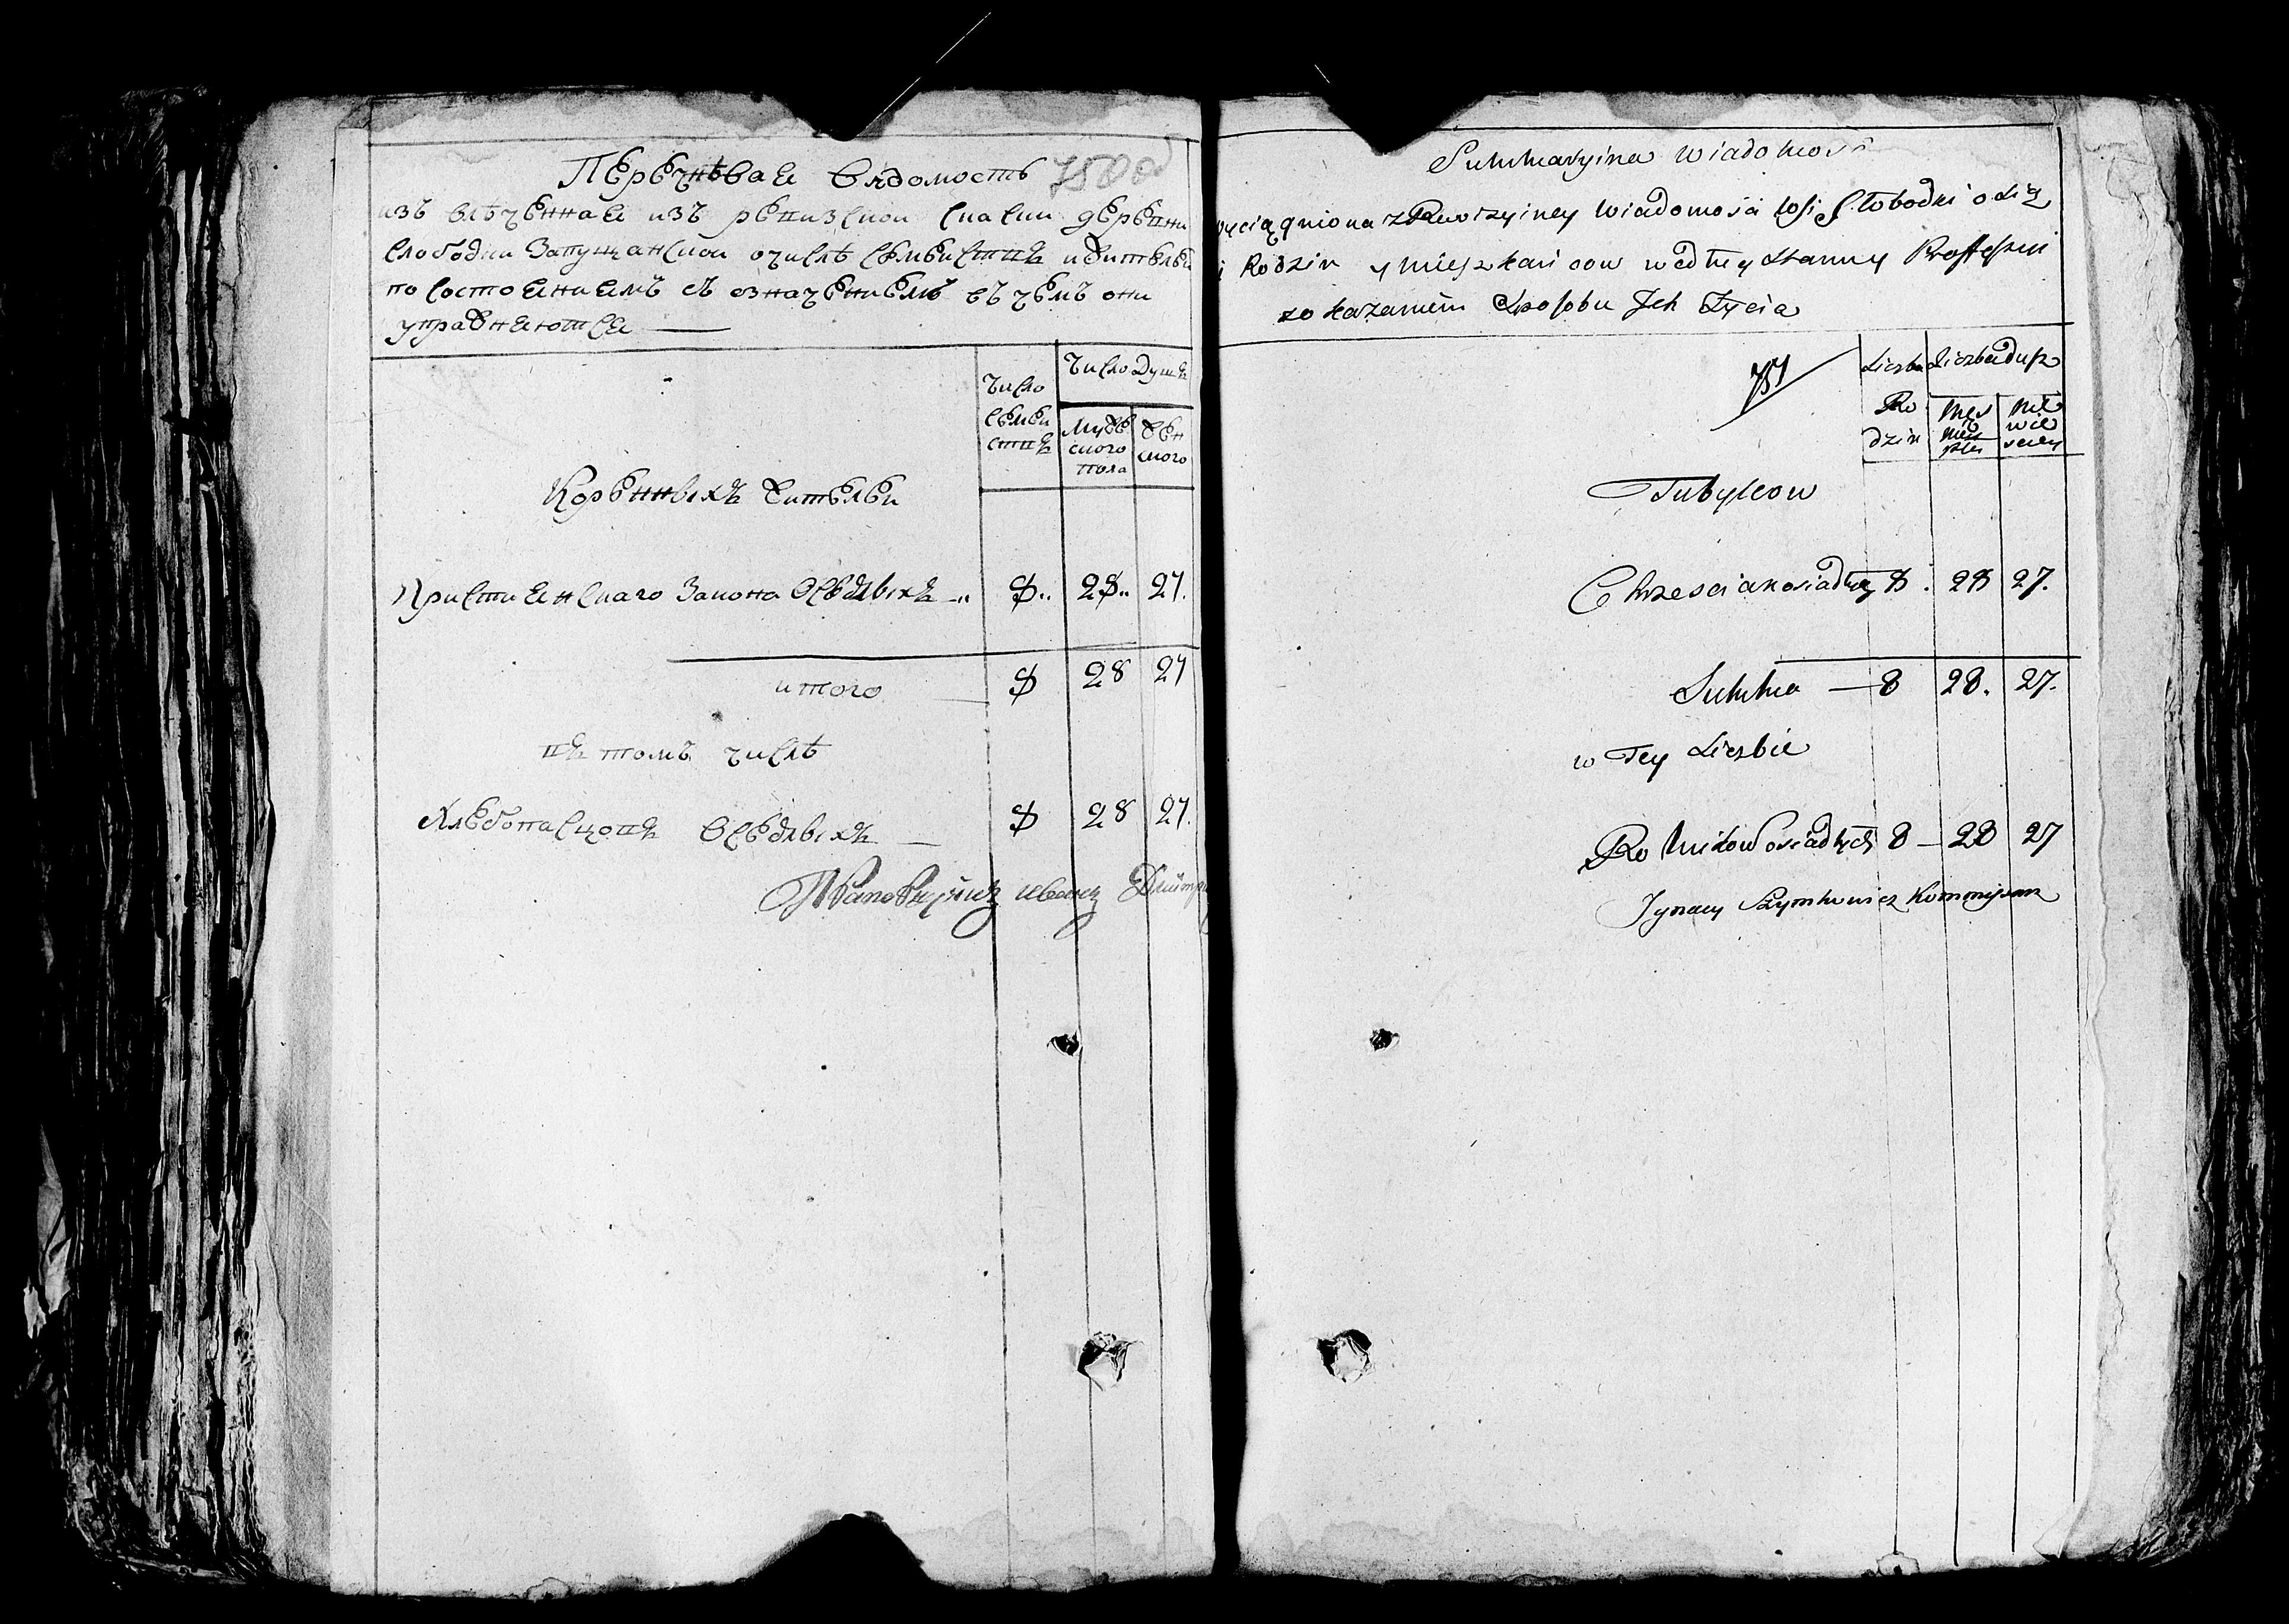 Перечневая ведомость
изъ влеченная изъ ревизской скаски деревни
Слободки Запущанской очислѣ семействъ ижителей
по состоянаемъ съ означениемъ въ чемъ они
упражняются
Число семействъ
Число Душъ
Мужеского пола
Женского
Кореннвıхъ жителей
Християнскаго Закона Оседлвıхъ 8.. 28.. 27.
итого 8 28 27
въ томъ числѣ
Хлебопасцовъ Оседлвıхъ 8 28 27.
Ивану
Summaryina Wiadomość
wyciągniona z Rewizyiney Wiadomości Wsi Słobodki o Licz
i Rodzin y Mieszkańcow według Stanny Proffeszii
zo kazaniem Sposobu Jch Życia
751
Liczba Rodzin
Liczba dusz
Męz
Nie wie sciey
Tubylcow
Chrzescianosiadłych 8. 28 27.
Summa — 8 28. 27.
w Tey Liczbie
Rolnikow osiadłych 8 — 28 27
Jgnacy Szymkowicz Kommisarz